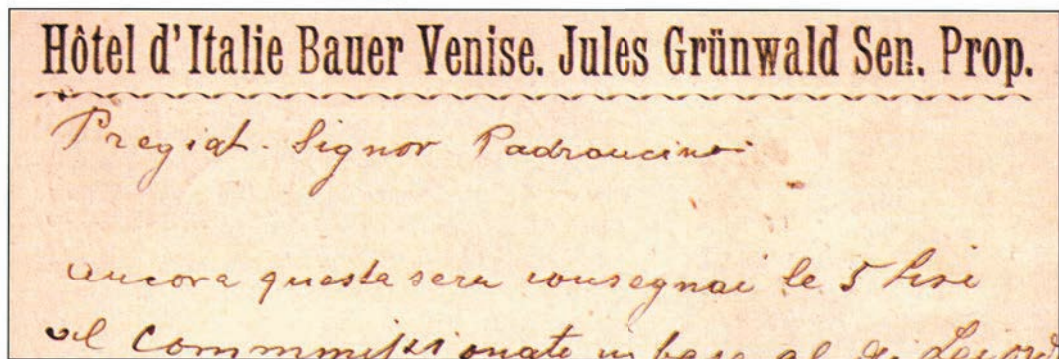 Hôtel d'Italie Bauer Venise. Jules Grünwald Sen. Prop.
Pregiat. Signor
ancora questa sera consegnai le 5 lire
al in base al